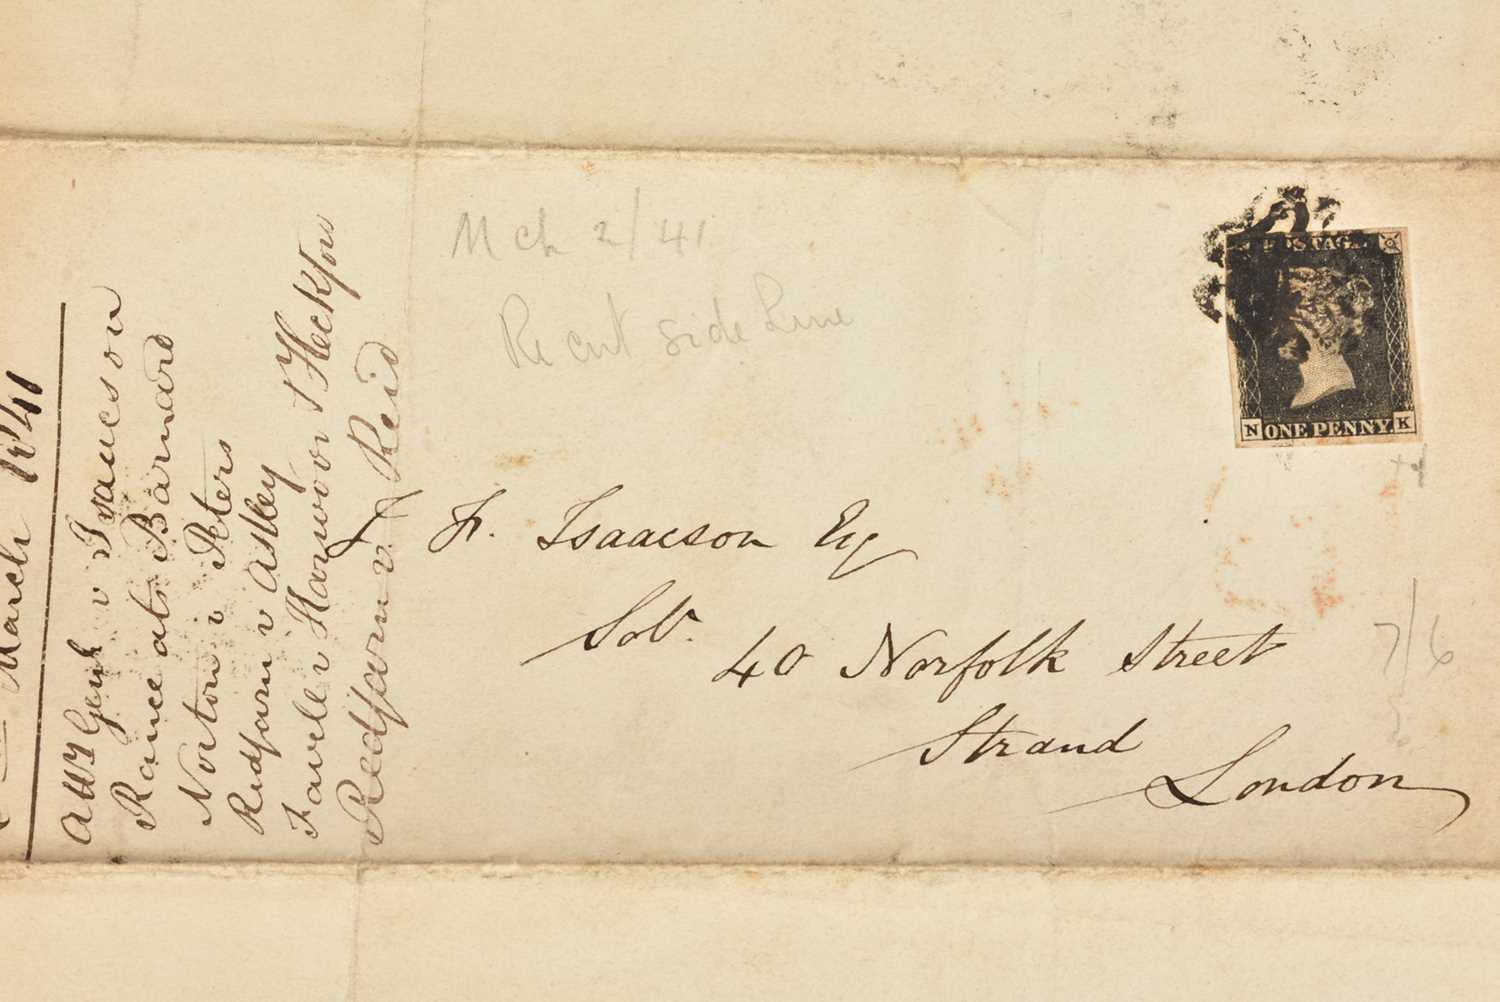 March 1841
Att^y Gen^l v Isaacson
Rance ats Barnard
Norton v Peters
Redfarn v Astley
Farrell v Harwood & Heckford
Redfarn v. Reid
Mch 2/41
Re cut side Line
POSTAGE
N ONE PENNY K
F. Isaacson Esq
Sol^r.
40 Norfolk Street
Strand
London
7/6